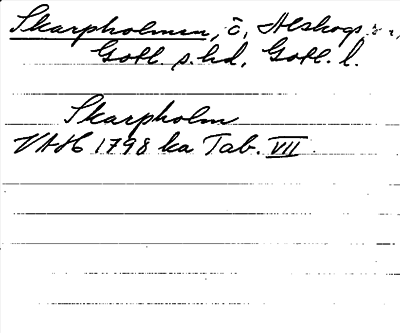 Skarpholmen, ö, Alskogs sn,
Gotl. s. hd, Gotl. l.
Skarpholm
VAH 1798 ka Tab. VII.